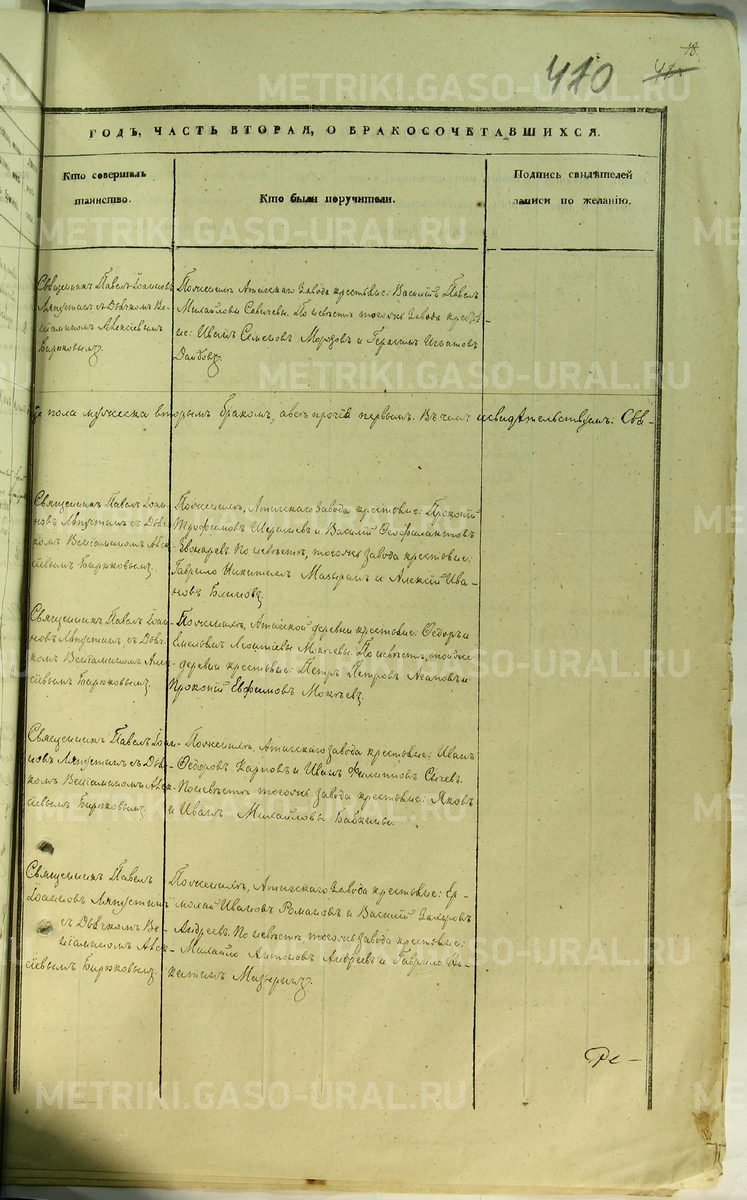 18.
410
ГОДЪ, ЧАСТЬ ВТОРАЯ, О БРАКОСОЧЕТАВШИХСЯ.
Кто совершалъ
таинство.
Кто были поручители.
Подпись свидѣтелей
записи по желанію.
Священникъ Павелъ Іоанновъ
Ляпустинъ съ Дьячкомъ Ве-
ніаминомъ Алексіевымъ
Бирюковымъ.
По женихѣ Атигскаго завода крестьяне: Василій и Павелъ
Михайловы Савичевы. По невѣстѣ того же завода крестья-
не: Иванъ Семеновъ Морозовъ и Герасимъ Игнатовъ
пола мужеска вторымъ бракомъ, а всѣ прочіе первымъ. Въ чемъ и свидѣтельствуемъ: Свя-
Священникъ Павелъ Іоан-
новъ Ляпустинъ съ Дьяч-
комъ Веніаминомъ Алек-
сіевымъ Бирюковымъ.
По женихѣ, Атигскаго завода крестьяне: Прокопій
Трофимовъ и Василій Феофилактовъ
По невѣстѣ, того же завода крестьяне:
Гаврило Никитинъ Мазыринъ и Алексій Ива-
новъ Блиновъ.
Священникъ Павелъ Іоан-
новъ Ляпустинъ, съ Дьяч-
комъ Веніаминомъ Алек-
сіевымъ Бирюковымъ.
По женихѣ, Атигской деревни крестьяне: Ѳедоръ и
Леонтіевы Мокѣевы. По невѣстѣ, той же
деревни крестьяне: Петръ Петровъ и
Прокопій Евфимовъ Мокѣевъ.
Священникъ Павелъ Іоан-
новъ Ляпустинъ съ Дьяч-
комъ Веніаминомъ Алек-
сіевымъ Бирюковымъ.
По женихѣ, Атигскаго завода крестьяне: Иванъ
Ѳедоровъ и Иванъ Филиповъ Сычевъ.
По невѣстѣ того же завода крестьяне: Яковъ
и Иванъ Михайловы Бабкины.
Священникъ Павелъ
Іоанновъ Ляпустинъ
съ Дьячкомъ Ве-
ніаминомъ Алек-
сіевымъ Бирюковымъ.
По женихѣ, Атигскаго завода крестьяне: Ер-
молай Ивановъ Романовъ и Василій Захаровъ
Андреевъ. По невѣстѣ, того же завода крестьяне:
Михайло Антоновъ Андреевъ и Гаврило Ни-
китинъ Мазыринъ.
METRIKI.GASO-URAL.RU